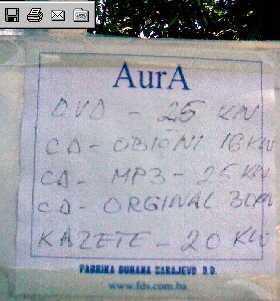 AurA
DVD - 25 KN
CD - OBIČNI 16 KN
CD - MP3 - 25 KN
CD - ORGINAL 3 KN
KAZETE - 20 KN
FABRIKA DUHANA SARAJEVO D.D.
www.fds.com.ba